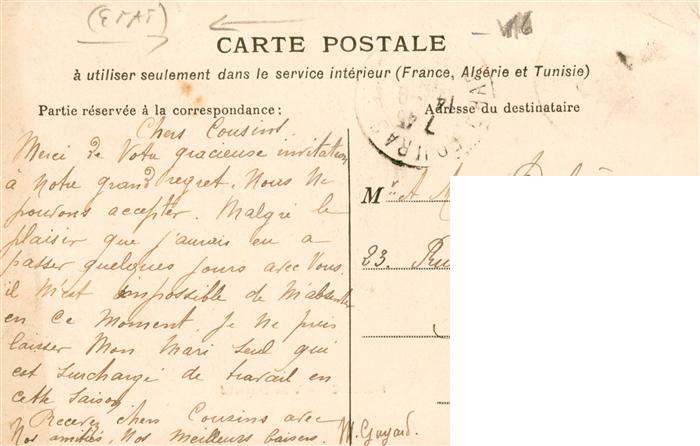 (ETAT)
CARTE POSTALE
à utiliser seulement dans le service intérieur (France, Algérie et Tunisie)
Partie réservée à la correspondance :
Adresse du destinataire
Chers Cousins.
Merci de Votre gracieuse invitation
à Notre grand regret. Nous Ne
pouvons accepter. Malgré le
plaisir que j'aurais eu a
passer quelques jours avec Vous.
il M'est impossible de M'absenter
en Ce Moment. Je Ne puis
laisser Mon Mari seul qui
est surchargé de travail en
cette Saison.
Recevez chers Cousins avec
Nos amitiés, Nos meilleurs baisers. M. Guyard.
M
23. Rue